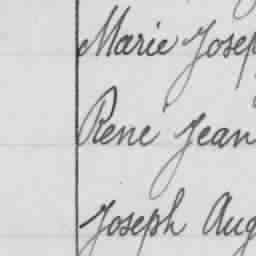 Marie Josep
René Jean
Joseph Aug